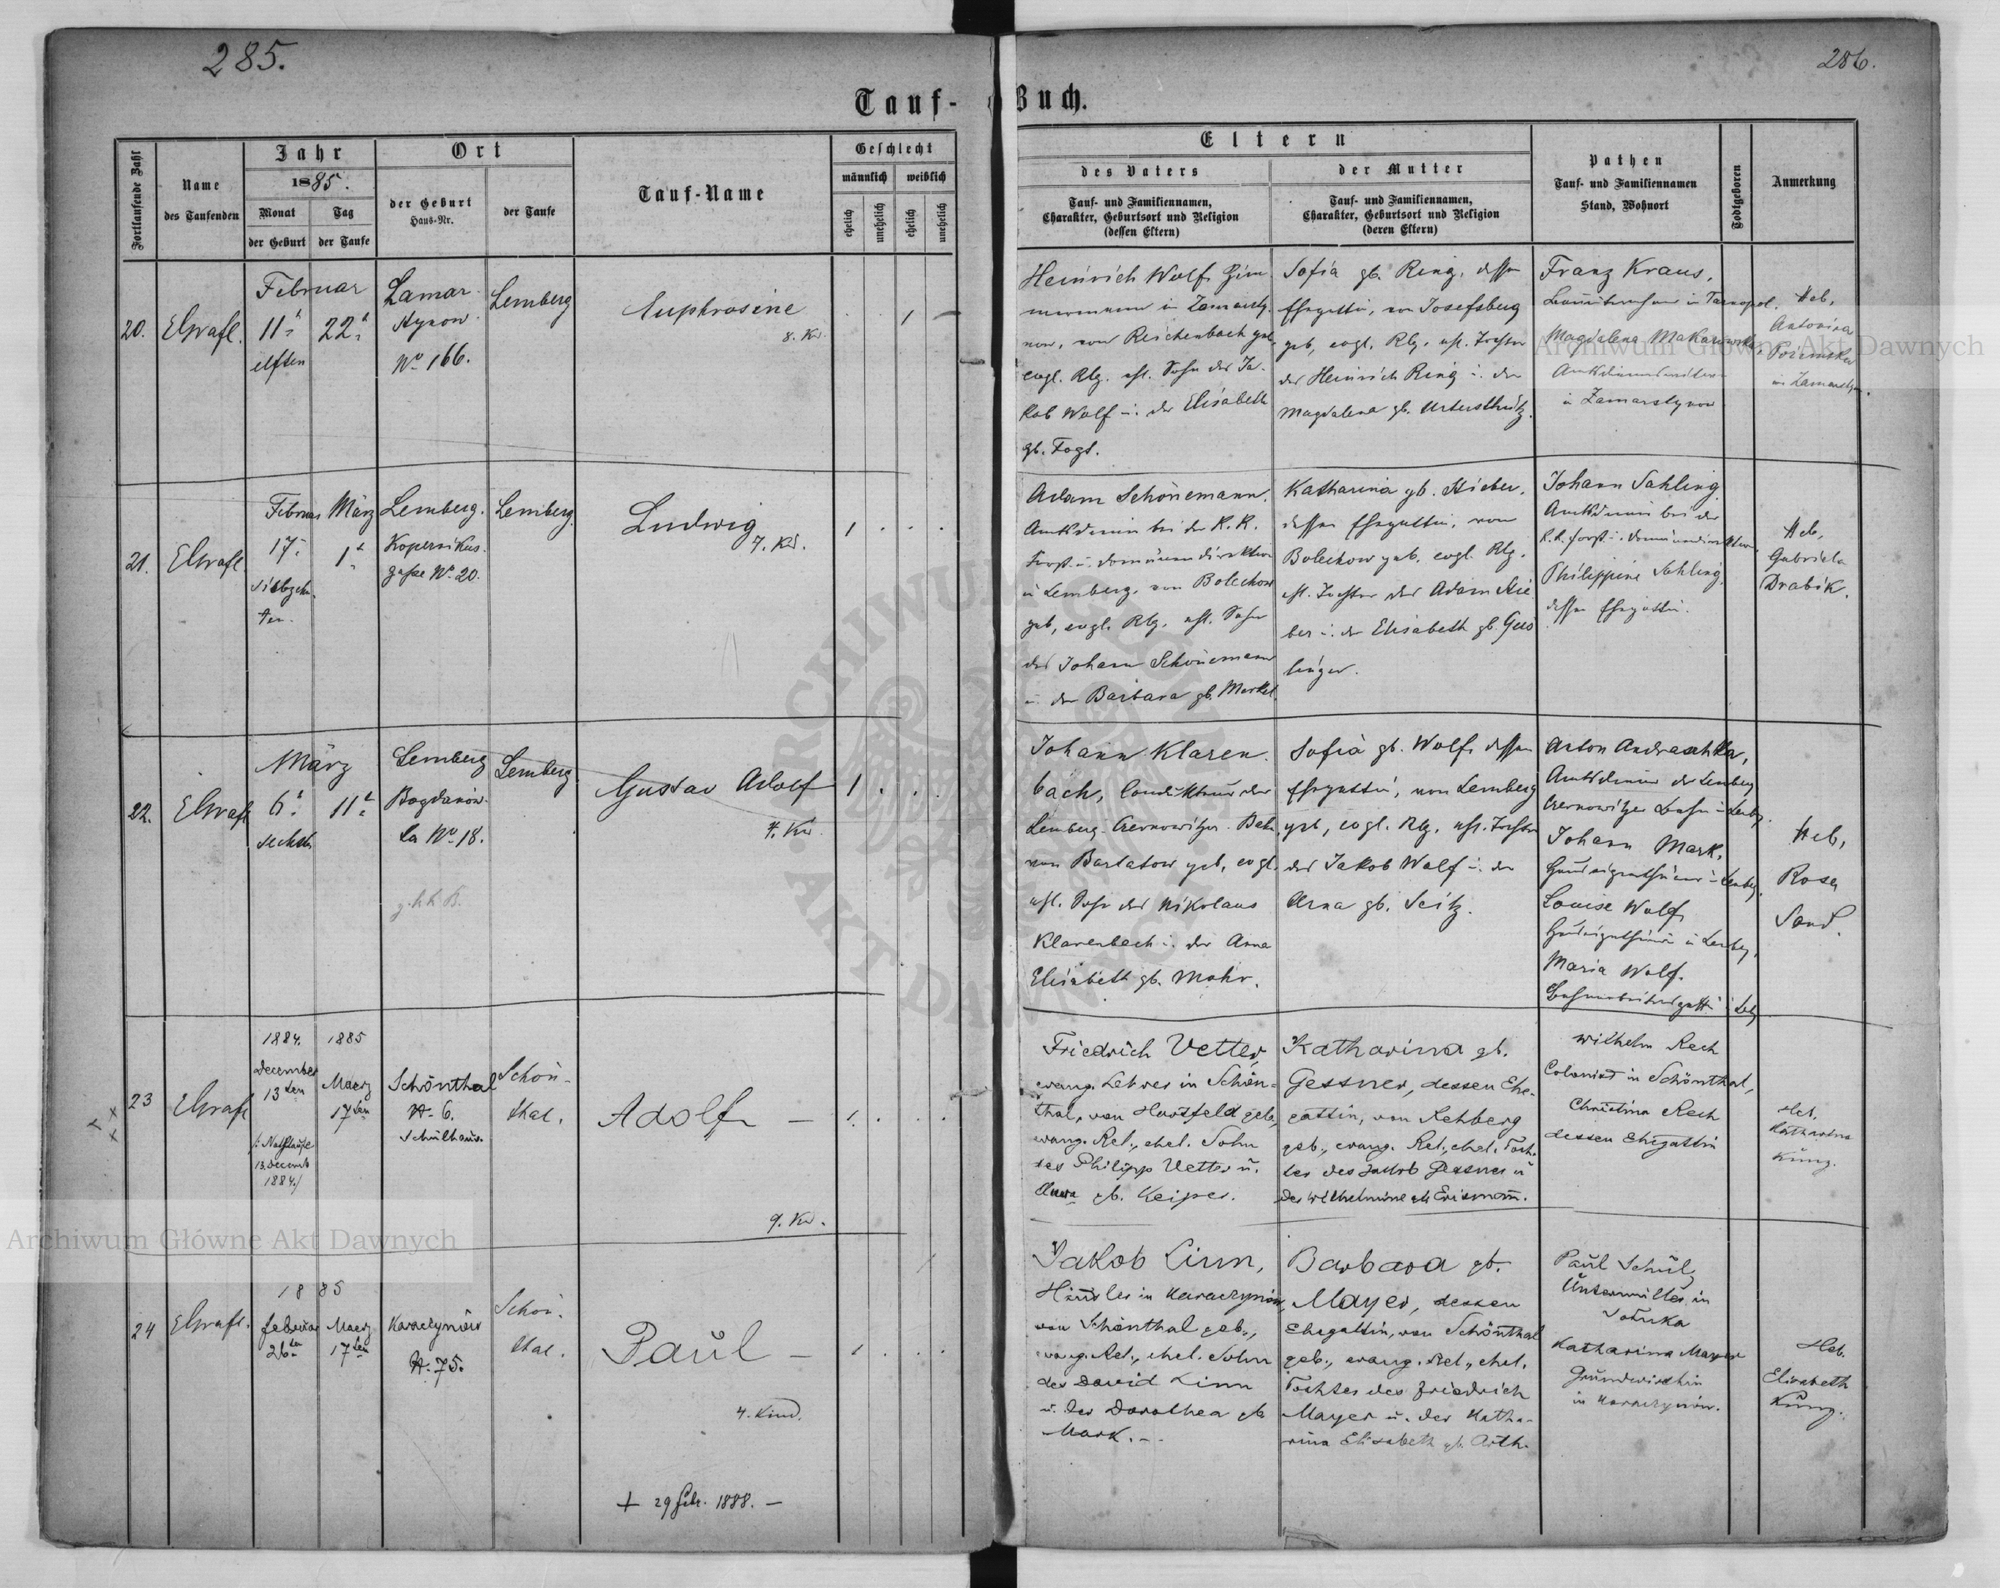 285.
286.
Tauf-Buch.
Fortlaufende Zahl
Name
des Taufenden
Jahr
1885.
Monat
der Geburt
Tag
der Taufe
Ort
der Geburt
Haus-Nr.
der Taufe
Tauf-Name
Geschlecht
männlich
weiblich
ehelich
unehelich
ehelich
unehelich
Eltern
des Vaters
Tauf- und Familiennamen,
Charakter, Geburtsort und Religion
(dessen Eltern)
der Mutter
Tauf- und Familiennamen,
Charakter, Geburtsort und Religion
(deren Eltern)
Pathen
Tauf- und Familiennamen
Stand, Wohnort
Todtgeboren
Anmerkung
20.
Februar
11t
22t
elften
Lemberg
No 166.
Euphrosine
8. Kd.
Heinrich Wolf,
now, von Reichenbach geb.
evgl. Rlg. ehl. Sohn des Ja-
kob Wolf u. der Elisabeth
gb. Fogt.
Sofia gb. Ring, dessen
Ehegattin, von Josefsberg
geb, evgl. Rlg. ehl. Tochter
des Heinrich Ring u. der
Magdalena gb.
Franz Kraus,
in Tarnopol.
Magdalena
in Zamarstynow
Heb,
Antonina
in
21.
Februar
März
17t
1t
siebzehn-
ten
Lemberg.
Kopernikus-
gasse No 20.
Lemberg.
Ludwig
7. Kd.
1
Adam Schönemann,
Amtsdiener bei der K. K.
Forst u. Domänendirektion
in Lemberg, von Bolechow
geb, evgl. Rlg. ehl. Sohn
des Johann Schönemann
u. der Barbara gb. Merkel.
Katharina gb. Hieber,
dessen Ehegattin, von
Bolechow geb. evgl. Rlg.
ehl. Tochter des Adam Hie
ber u. der Elisabeth gb. Geis
linger.
Johann Sahling
Amtsdiener bei der
K. K. Forst u. Domänendirektion
Philippine Sahling,
dessen Ehegattin.
Heb,
Gabriela
Drabik.
22.
März
6t
11t
sechsten
Lemberg
Bogdanów-
ka No 18.
Lemberg
Gustav Adolf
4. Kd.
1
Johann Klaren-
bach, Condukteur der
Lemberg Czernowitzer Bahn,
von Bartatow geb, evgl.
ehl. Sohn des Nikolaus
Klarenbach u. der Anna
Elisabeth gb. Mohr.
Sofia gb. Wolf, dessen
Ehegattin, von Lemberg
geb, evgl. Rlg. ehl. Tochter
des Jakob Wolf u. der
Anna gb. Seitz.
Anton Andraschka,
Amtsdiener der Lemberg
Czernowitzer Bahn in
Johann Mark,
Louise Wolf,
Maria Wolf.
Heb,
Rosa
Sand.
23
1884.
1885
December
13ten
Maerz
17ten
/: Nothtaufe
13. Decemb
1884./
Schönthal
N. 6.
Schulhaus.
Schön-
thal.
Adolf —
9. Kd.
1.
Friedrich Vetter,
evang. Lehrer in Schön-
thal, von Hartfeld geb.,
evang. Rel., ehel. Sohn
des Philipp Vetter u.
Anna gb. Keiper.
Katharina gb.
Gessner, dessen Ehe-
gattin, von Rehberg
geb., evang. Rel., ehel. Toch-
ter des Jakob Gessner u
der Wilhelmine gb Erismann.
Wilhelm Rech
Colonist in Schönthal,
Christina Rech
dessen Ehegattin
Heb.
Katharina
Küng.
24
1885
februar
26ten
Maerz
17ten
Karaczynów
N. 75.
Schön-
thal.
Paul —
4. Kind.
+ 29 Feb. 1888. —
1
Jakob Linn,
Häusler in Karaczynów,
von Schönthal geb.,
evang. Rel., ehel. Sohn
des David Linn
u. der Dorothea gb
Mark. —
Barbara gb.
Mayer, dessen
Ehegattin, von Schönthal
geb., evang. Rel., ehel.
Tochter des Friedrich
Mayer u. der Katha-
rina Elisabeth gb. Orth.
Paul Schül,
Untermüller in
Katharina Mayer
Grundwirthin
in Karaczynów.
Heb.
Elisabeth
Küng.
Archiwum Główne Akt Dawnych
Archiwum Główne Akt Dawnych